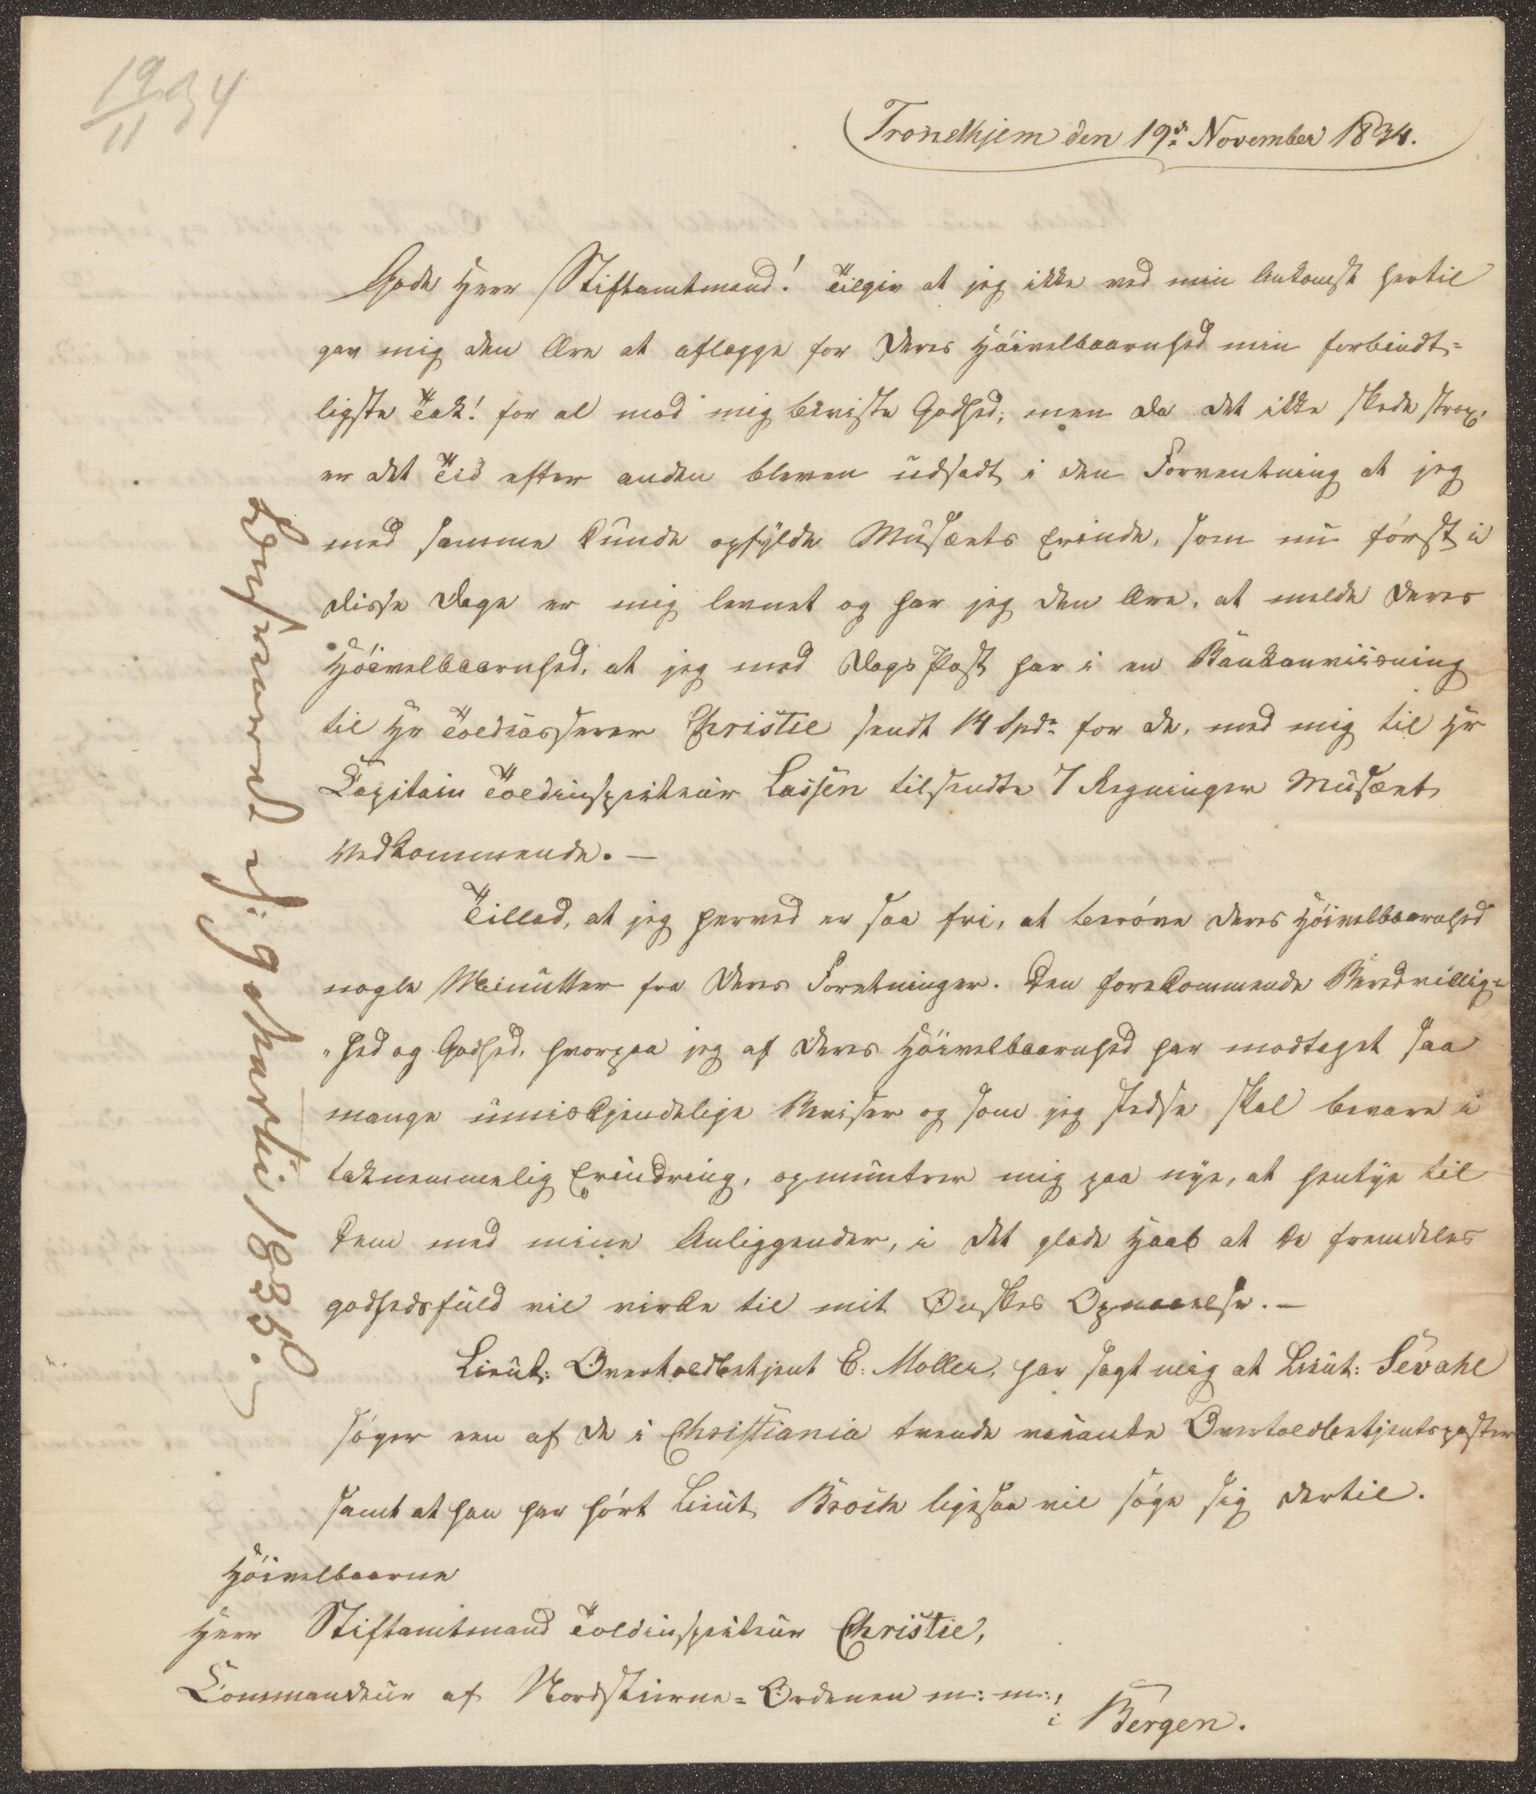 19/11 34
Trondhjem den 19de November 1834.
Gode Herr Stiftamtmand! Tilgiv at jeg ikke ved min Ankomst hertil
gav mig den Ære at aflægge for Deres Høivelbaarnhed min forbindt-
ligste Tak! for al mod mig beviste Godhed; men da det ikke skede strax,
er det Tid efter anden bleven udsadt, i den Forventning at jeg
med samme kunde opfylde Musæets Erinde, som nu først i
disse Dage er mig levnet og har jeg den Ære, at melde Deres
Høivelbaarnhed, at jeg med Dags Post har i en Bankanviisning
til Hr Toldcasserer Christie sendt 14 Spdr for de, med mig til Hr
Capitain Toldinspecteur Lassen tilsendte 7 Regninger Musæet
vedkommende. —
Tillad, at jeg herved er saa fri, at berøve Deres Høivelbaarnhed
nogle Minutter fra Deres Forretninger. Den forekommende Beredvillig-
hed og Godhed, hvorpaa jeg af Deres Høivelbaarnhed har modtaget saa
mange umiskjendelige Beviser og som jeg stedse skal bevare i
taknemmelig Erindring, opmuntrer mig paa nye, at hentye til
Dem med mine Anliggender, i det glade Haab at De fremdeles
godhedsfuld vil virke til mit Ønskes Opnaaelse. —
Lieut: Overtoldbetjent C: Møller, har sagt mig at Lieut: Sevahl
søger een af de i Christiania tvende vacante Overtoldbetjentsposter
samt at han har hørt Lieut. Broch ligesaa vil søge sig dertil.
Høivelbaarne
Herr Stiftamtmand Toldinspecteur Christie,
Commandeur af Nordstierne-Ordenen m: m:,
i Bergen.
Besvaret d. 9 Martii 1835.